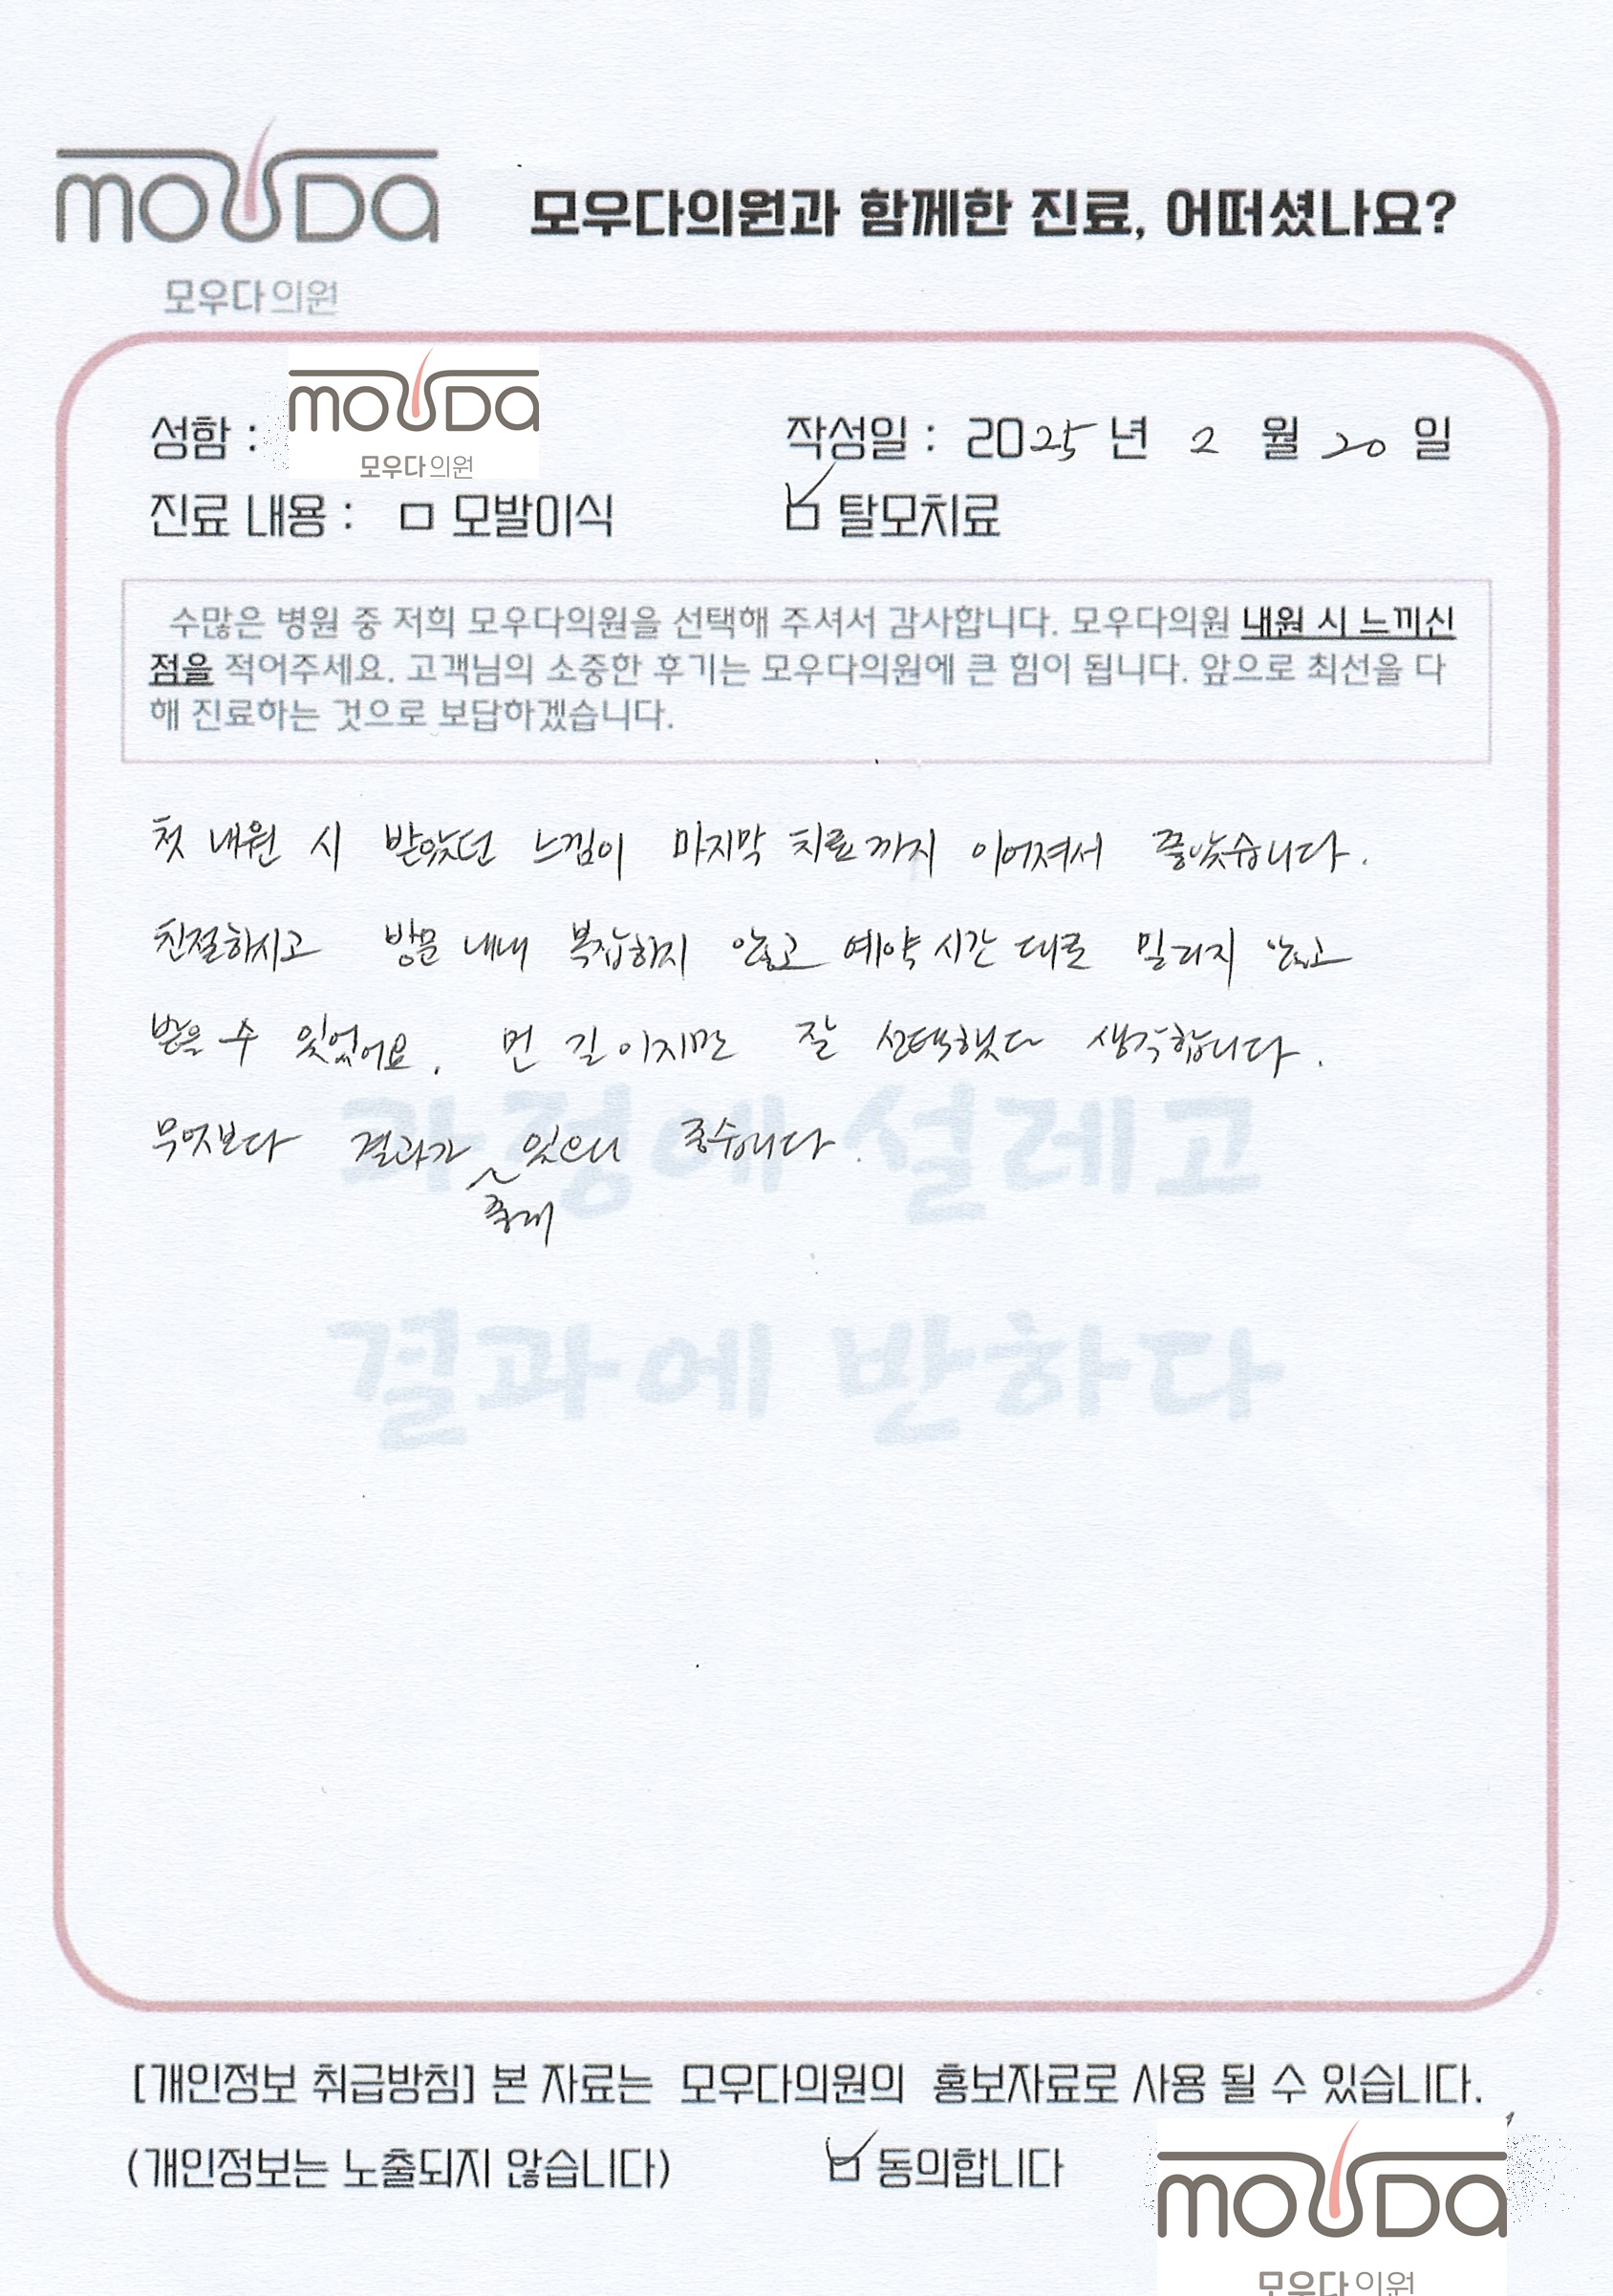 mouda
모우다의원
모우다의원과 함께한 진료, 어떠셨나요?
성함 : mouda 모우다의원
작성일 : 2025년 2월 20일
진료 내용 : □ 모발이식 ☑ 탈모치료
수많은 병원 중 저희 모우다의원을 선택해 주셔서 감사합니다. 모우다의원 내원 시 느끼신
점을 적어주세요. 고객님의 소중한 후기는 모우다의원에 큰 힘이 됩니다. 앞으로 최선을 다
해 진료하는 것으로 보답하겠습니다.
첫 내원 시 받았던 느낌이 마지막 치료까지 이어져서 좋았습니다.
친절하시고 방문 내내 복잡하지 않고 예약 시간 대로 밀리지 않고
받을 수 있었어요. 먼 길이지만 잘 선택했다 생각합니다.
무엇보다 결과가 있으니 좋습니다.
과정에 설레고
결과에 반하다
[개인정보 취급방침] 본 자료는 모우다의원의 홍보자료로 사용 될 수 있습니다.
(개인정보는 노출되지 않습니다) ☑ 동의합니다
mouda
모우다의원